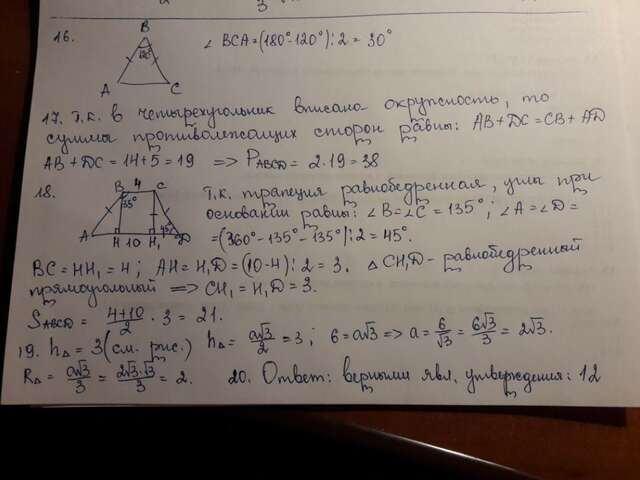 16. B 120° A C ∠ BCA = (180° - 120°) : 2 = 30°
17. Т.к. в четырехугольник вписана окружность, то
суммы противолежащих сторон равны: AB + DC = CB + AD
AB + DC = 14 + 5 = 19 => P_ABCD = 2·19 = 38
18. B 4 C 135° A H 10 H₁ 45° D
Т.к. трапеция равнобедренная, углы при
основании равны: ∠B = ∠C = 135°; ∠A = ∠D =
= (360° - 135° - 135°) : 2 = 45°.
BC = HH₁ = 4; AH = H₁D = (10 - 4) : 2 = 3. △ CH₁D - равнобедренный
прямоугольный => CH₁ = H₁D = 3.
S_ABCD = (4+10)/2 · 3 = 21.
19. h_△ = 3 (см. рис.) h_△ = a√3/2 = 3; 6 = a√3 => a = 6/√3 = 6√3/3 = 2√3.
R_△ = a√3/3 = 2√3·√3/3 = 2. 20. Ответ: верными явл. утверждения: 12